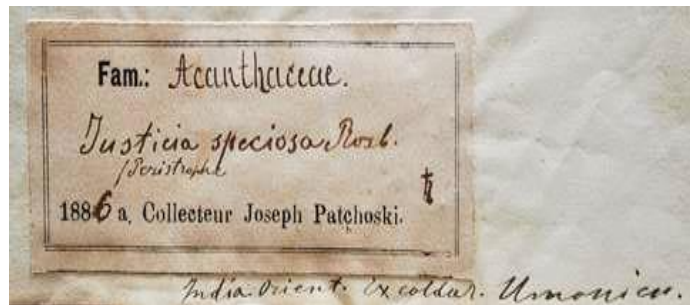 Fam.: Acanthaceae.
Justicia speciosa Roxb.
/Peristrophe
♄
1886 a, Collecteur Joseph Patchoski.
India Orient. Excoldur. Umoniču.